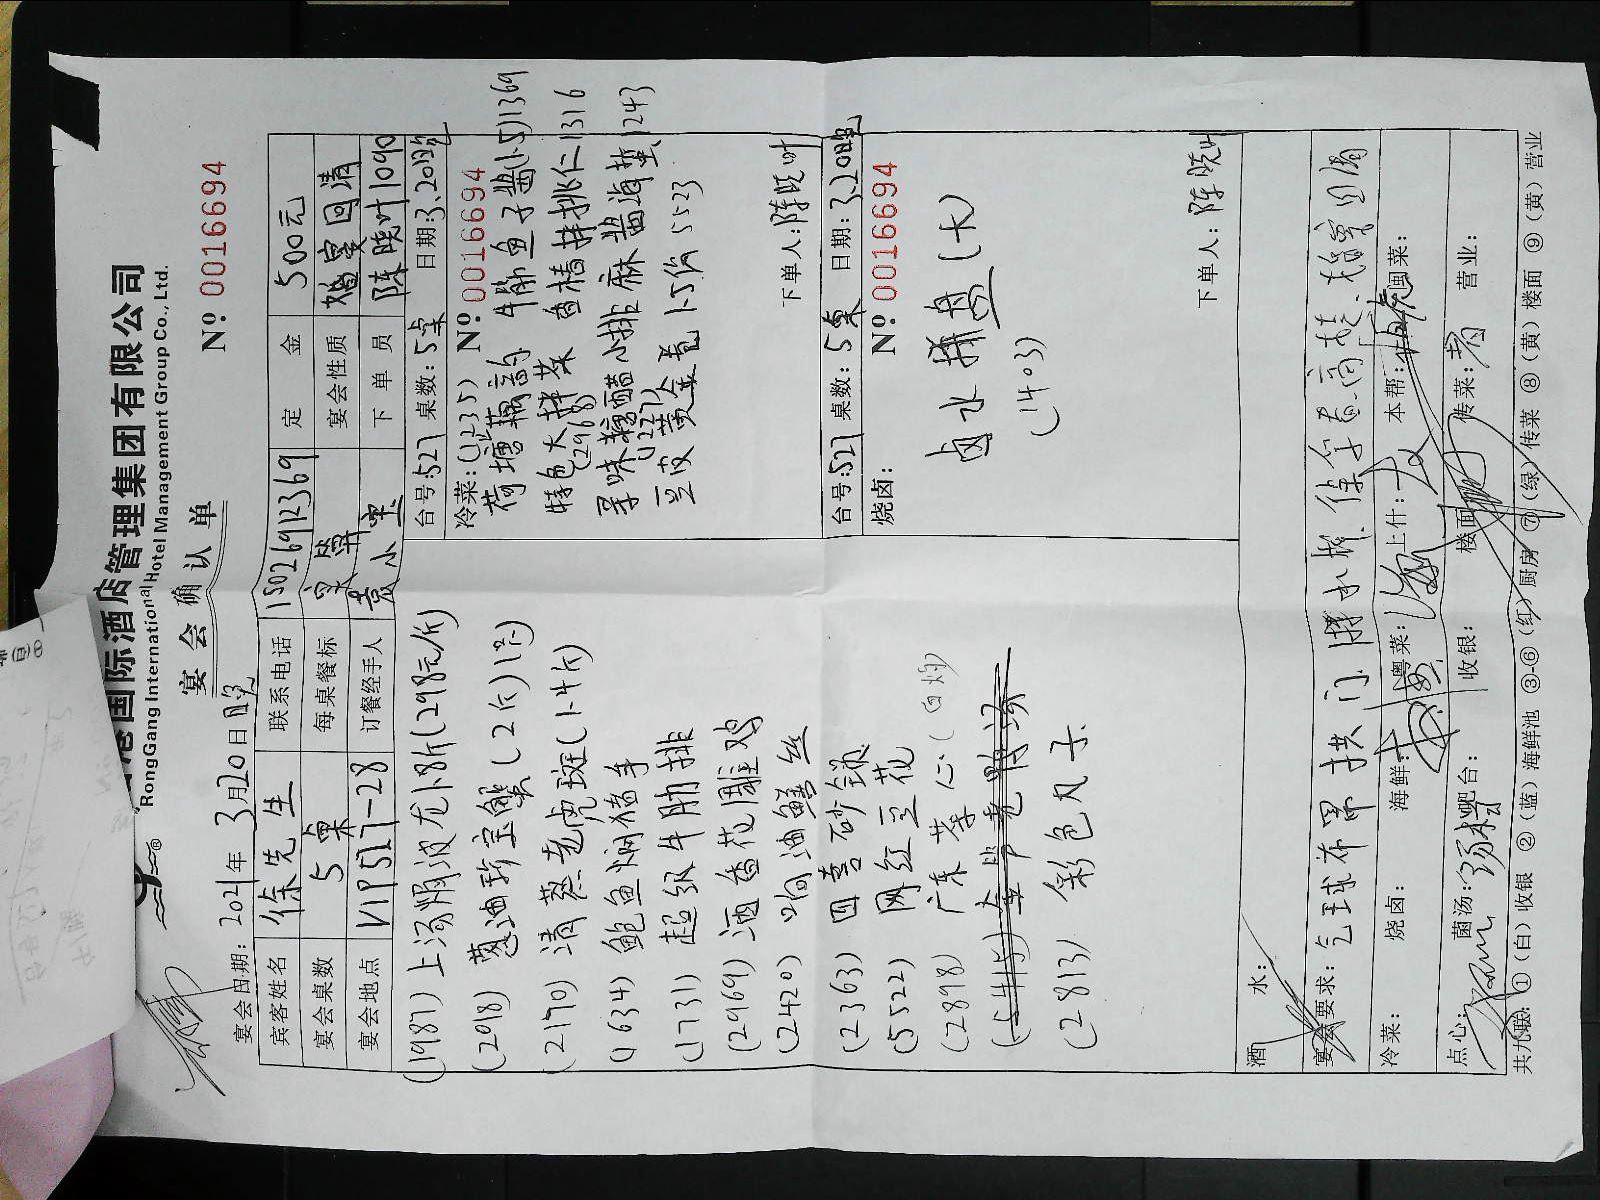 港国际酒店管理集团有限公司
RongGang International Hotel Management Group Co., Ltd.
宴会确认单
№: 0016694
宴会日期: 2021年3月20日晚
宾客姓名 徐先生 联系电话 15026912369 定金 500元
宴会桌数 5桌 每桌餐标 宴会性质 婚宴回请
宴会地点 VIP527-28 订餐经手人 袁小宝 下单员 陈晓叶1090
(1987) 上汤焗波龙1-8斤(298元/斤)
(2918) 葱油珍宝蟹(2斤)
(2170) 清蒸老虎斑(1-4斤)
(1634) 鲍鱼焖猪手
(1731) 超级牛肋排
(2969) 酒香花雕鸡
(2420) 响油鳝丝
(2363) 四喜砂锅
(5522) 网红豆花
(2898) 广东菜心(白灼)
(2813) 彩色凡子
台号:527 桌数:5桌 日期:3.20晚
冷菜: №: 0016694
(1235)
荷塘藕韵 牛腩鱼子酱(1-5)1369
特色大拌菜 香桔拌桃仁1316
(2968)
寻味糖醋小排 麻酱海蜇1243
(1227)
豆皮黄金卷1-5份5523
下单人:陈晓叶
台号:527 桌数:5桌 日期:3.20晚
烧卤: №: 0016694
卤水拼盘(大)
(1403)
下单人:陈晓叶
酒水:
宴会要求: 气球布帘拱门
冷菜: 烧卤: 海鲜: 粤菜: 上什: 本帮: 闽菜:
点心: 菌汤: 吧台: 收银: 楼面: 传菜: 营业:
共九联: ①(白)收银 ②(蓝)海鲜池 ③-⑥(红)厨房 ⑦(绿)传菜 ⑧(黄)楼面 ⑨(黄)营业